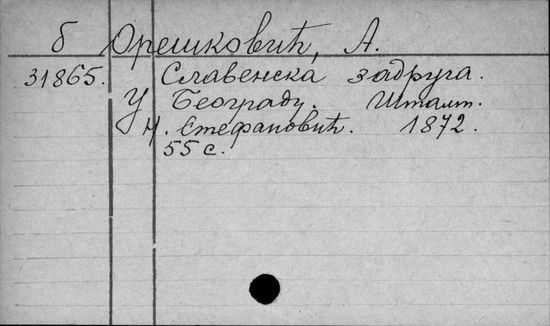 б Орешковић, А.
31865. Славенска задруга.
У Београду. Штамп.
Н. Стефановић. 1872.
55 с.